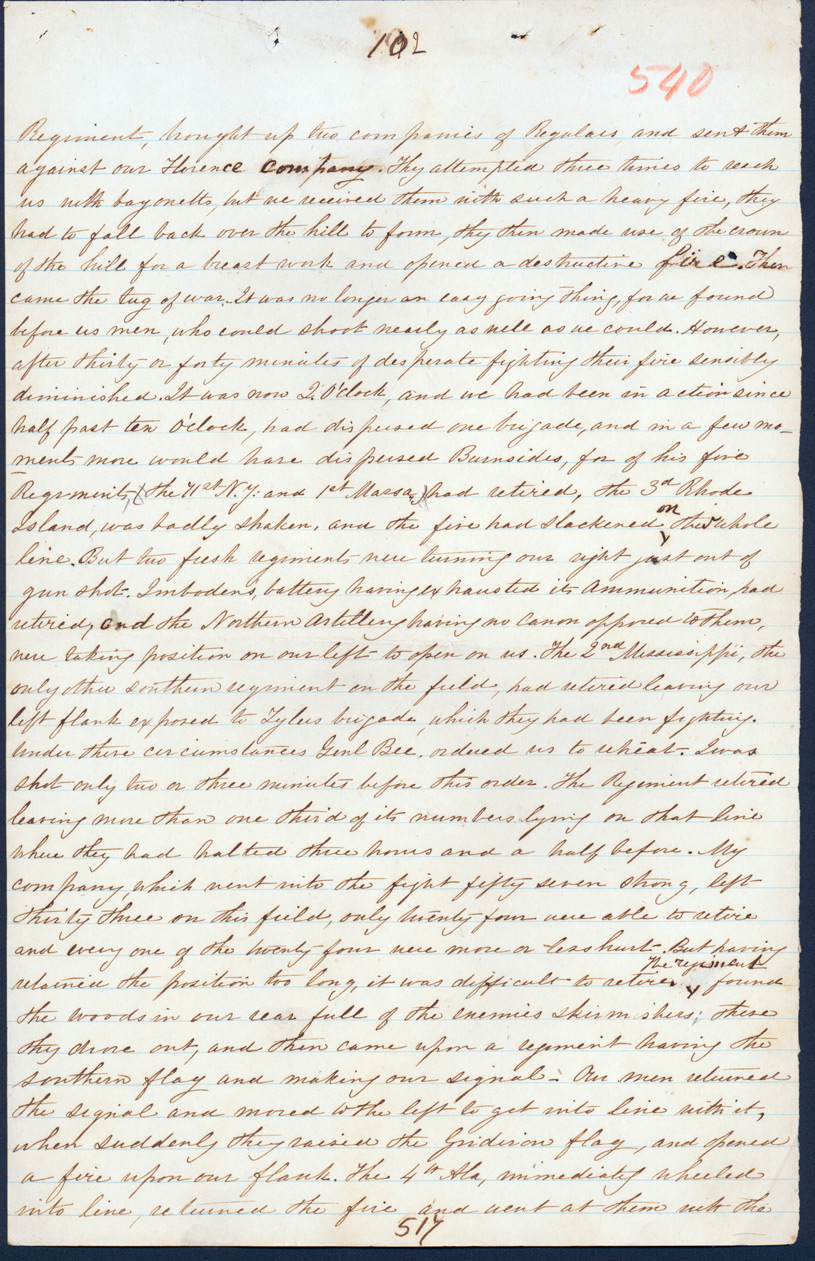 102
540
Regiment, brought up two companies of Regulars and sent them
against our Florence company. They attempted three times to reach
us with bayonetts, but we received them with such a heavy fire, they
had to fall back over the hill to form, they then made use of the crown
of the hill for a breast work and opened a destructive fire. Then
came the tug of war. It was no longer an easy going thing, for we found
before us men, who could shoot nearly as well as we could. However,
after thirty or forty minutes of desperate fighting their fire sensibly
diminished. It was now 2. O'clock, and we had been in action since
half past ten O'clock, had dispersed one brigade, and in a few mo-
ments more would have dispersed Burnsides, for of his five
Regiments, (the 71st N.Y. and 1st Massa,) had retired, the 3rd Rhode
Island, was badly shaken, and the fire had slackened on their whole
line. But two fresh regiments were turning our right just out of
gun shot. Imboden's, battery having exhausted its Ammunition, had
retired, and the Northern Artillery having no canon opposed to them,
were taking position on our left to open on us. The 2nd Mississippi, the
only other southern regiment on the field, had retired leaving our
left flank exposed to Tylers brigade, which they had been fighting.
Under these circumstances Genl Bee. ordered us to retreat. I was
shot only two or three minutes before this order. The Regiment retired
leaving more than one third of its numbers lying on that line
where they had halted three hours and a half before. My
company, which went into the fight fifty seven strong, left
thirty three on this field, only twenty four were able to retire
and every one of the twenty four were more or less hurt. But having
retained the position too long, it was difficult to retire, the regiment found
the woods in our rear full of the enemies skirmishers; these
they drove out, and then came upon a regiment having the
southern flag and making our signal - Our men returned
the signal and moved to the left to get into line with it,
when suddenly they raised the Gridiron flag, and opened
a fire upon our flank. The 4th Ala, immediately wheeled
into line, returned the fire and went at them with the
517